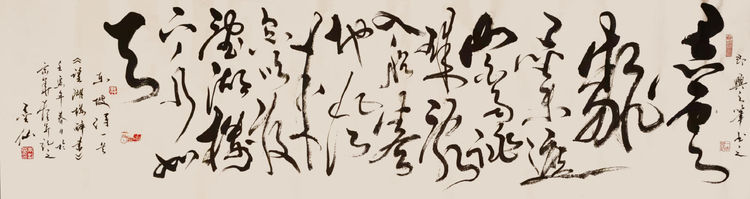 黑雲
翻
墨未遮
山白雨跳
珠亂
入船卷
地風
來
忽吹散
望湖樓
下水如
天
東坡詩一首
《望湖樓醉書》
壬寅年春日於